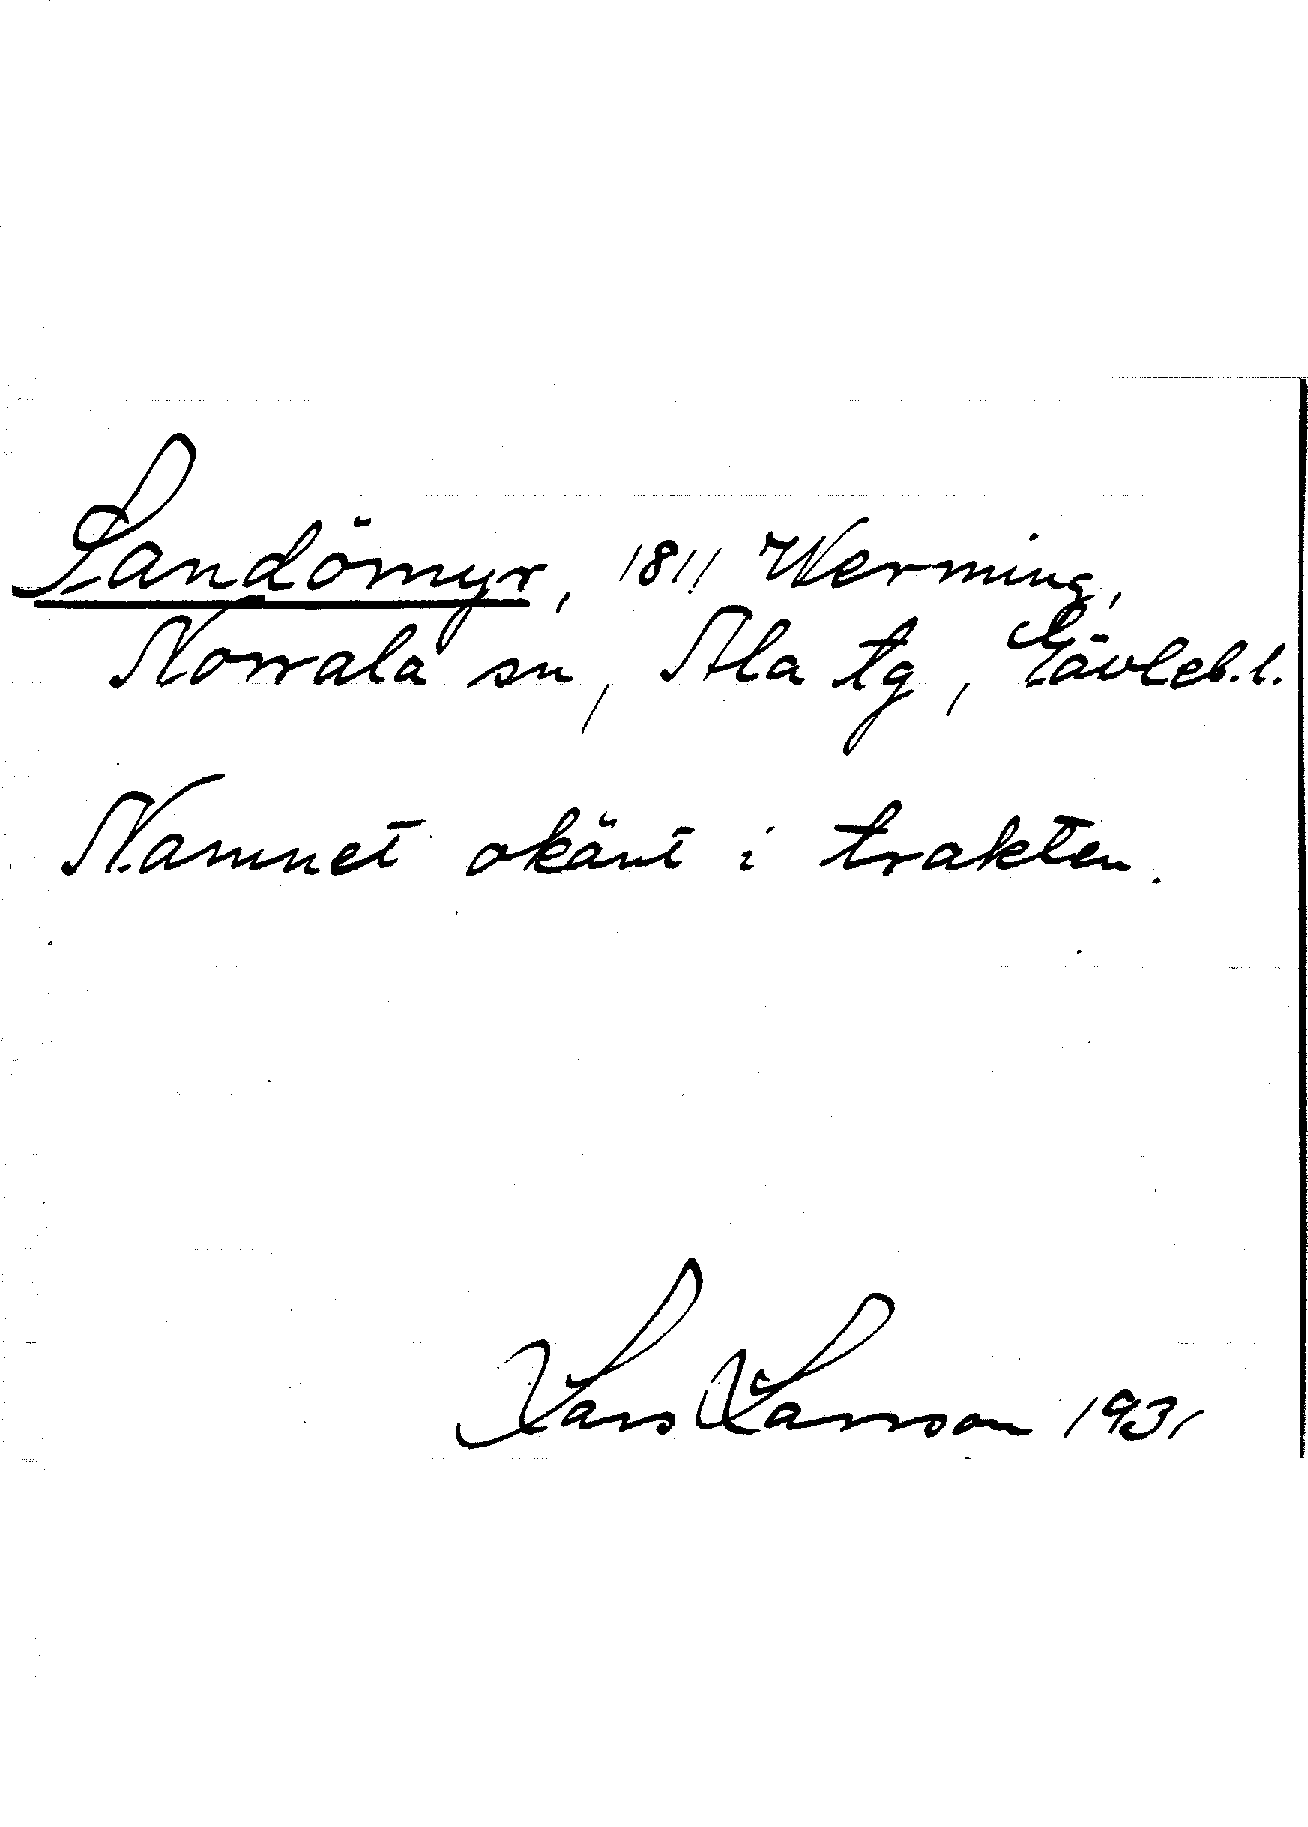 Sandömyr, 1811 Werming,
Norrala sn, Ala tg, Gävleb.l.
Namnet okänt i trakten.
Lars Larsson 1931